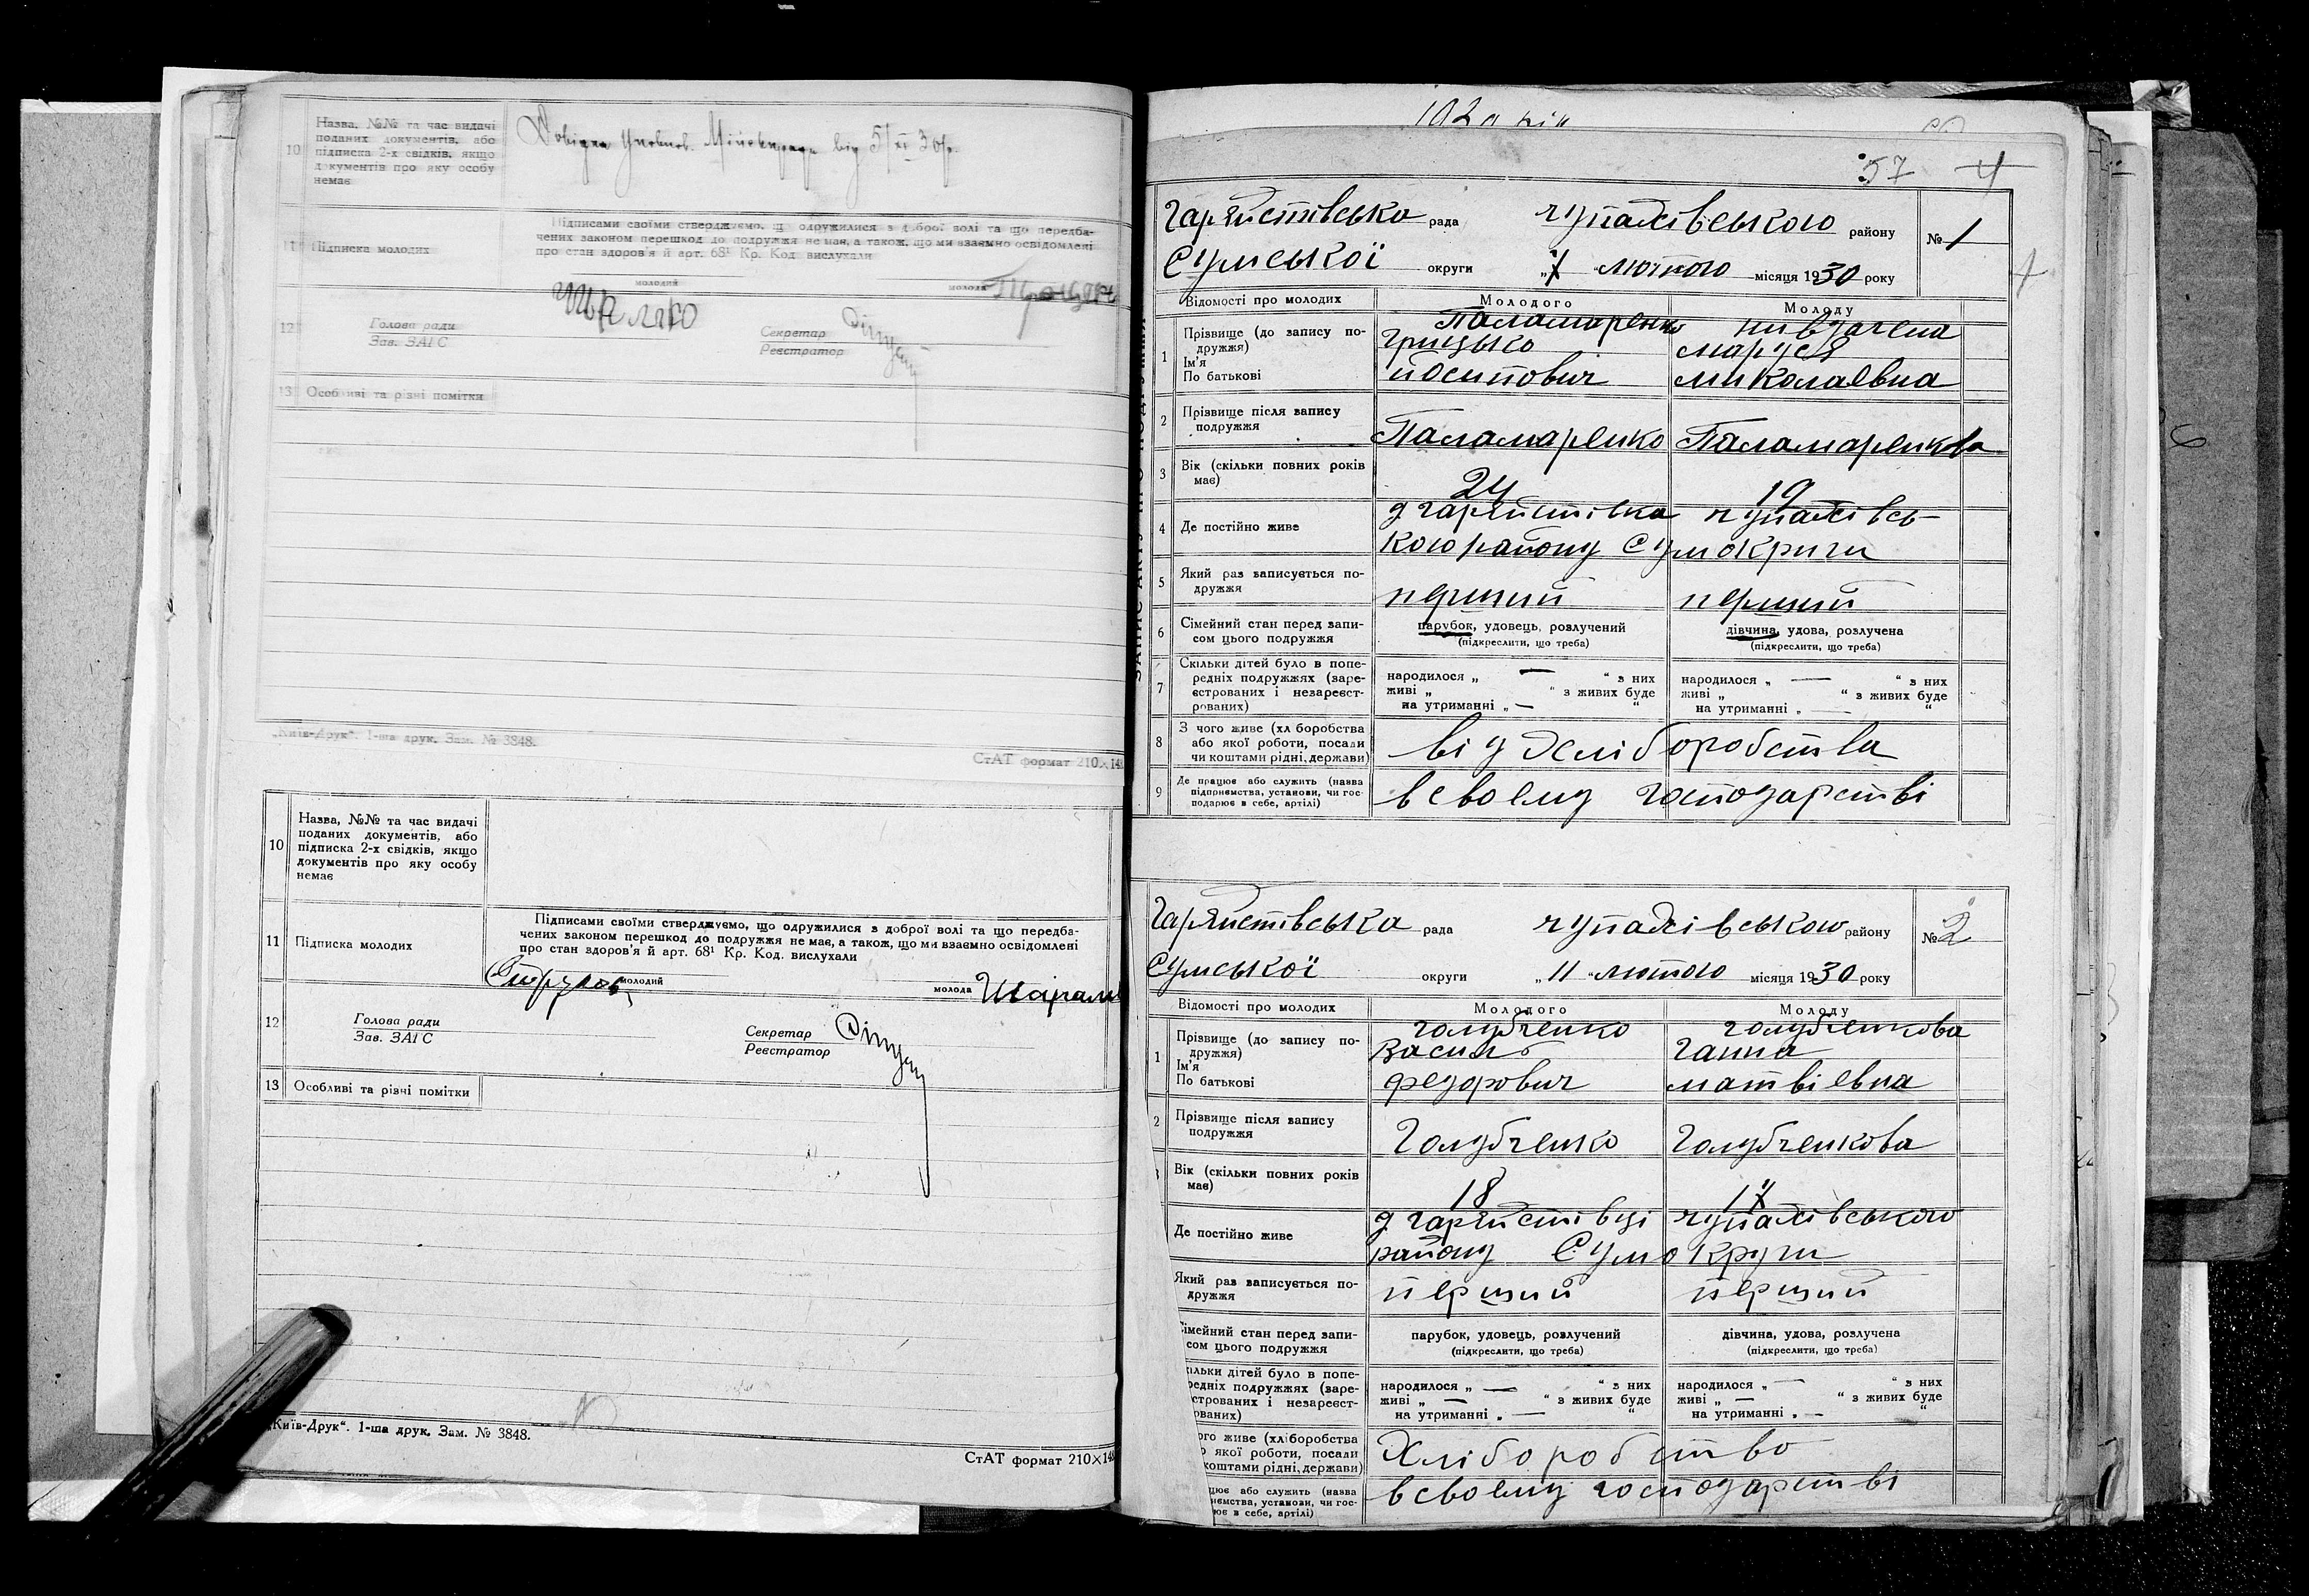 10 Назва, №№ та час видачі
поданих документів, або
підписка 2-х свідків, якщо
документів про яку особу
немає
від 5/XI 30р.
11 Підписка молодих
Підписами своїми стверджуємо, що одружилися з доброї волі та що передба-
чених законом перешкод до подружжя не має, а також, що ми взаємно освідомлені
про стан здоров'я й арт. 68¹ Кр. Код. вислухали
молодий
молода
12 Голова ради
Зав. ЗАГС
Секретар
Реєстратор
13 Особливі та різні помітки
„Київ-Друк“. 1-ша друк. Зам. № 3848.
СтАТ формат 210×148
10 Назва, №№ та час видачі
поданих документів, або
підписка 2-х свідків, якщо
документів про яку особу
немає
11 Підписка молодих
Підписами своїми стверджуємо, що одружилися з доброї волі та що передба-
чених законом перешкод до подружжя не має, а також, що ми взаємно освідомлені
про стан здоров'я й арт. 68¹ Кр. Код. вислухали
молодий
молода
12 Голова ради
Зав. ЗАГС
Секретар
Реєстратор
13 Особливі та різні помітки
„Київ-Друк“. 1-ша друк. Зам. № 3848.
СтАТ формат 210×148
57 4
Гаряйстівська рада чупахівського району № 1
Сумської округи „7“ лютого місяця 1930 року
Відомості про молодих Молодого Молоду
1 Прізвище (до запису по-
дружжя)
Ім'я
По батькові
Паламаренко
Грицько
йосипович
маруся
миколаєвна
2 Прізвище після запису
подружжя
Паламаренко Паламаренкова
3 Вік (скільки повних років
має)
24 19
4 Де постійно живе
д гаряйстівка чупахівсь-
кого району Сумокриги
5 Який раз записується по-
дружжя
перший перший
6 Сімейний стан перед запи-
сом цього подружжя
парубок, удовець, розлучений
(підкреслити, що треба)
дівчина, удова, розлучена
(підкреслити, що треба)
7 Скільки дітей було в попе-
редніх подружжях (заре-
єстрованих і незареєст-
рованих)
народилося „ — “ з них
живі „ “ з живих буде
на утриманні „ — “
народилося „ — “ з них
живі „ “ з живих буде
на утриманні „ — “
8 З чого живе (хліборобства
або якої роботи, посади
чи коштами рідні, держави)
від хліборобства
9 Де працює або служить (назва
підприємства, установи, чи гос-
подарює в себе, артілі)
в своєму господарстві
Гаряйстівська рада чупахівського району № 2
Сумської округи „11“ лютого місяця 1930 року
Відомості про молодих Молодого Молоду
1 Прізвище (до запису по-
дружжя)
Ім'я
По батькові
голубченко
Василь
федорович
голубченкова
ганна
матвієвна
2 Прізвище після запису
подружжя
Голубченко Голубченкова
Вік (скільки повних років
має)
18
Де постійно живе
д гаряйстівці чупахівського
району Сумокруги
Який раз записується по-
дружжя
перший перший
Сімейний стан перед запи-
сом цього подружжя
парубок, удовець, розлучений
(підкреслити, що треба)
дівчина, удова, розлучена
(підкреслити, що треба)
кільки дітей було в попе-
редніх подружжях (заре-
єстрованих і незареєст-
рованих)
народилося „ — “ з них
живі „ — “ з живих буде
на утриманні „ — “
народилося „ — “ з них
живі „ — “ з живих буде
на утриманні „ — “
ого живе (хліборобства
о якої роботи, посади
коштами рідні, держави)
Хліборобство
цює або служить (назва
иємства, установи, чи гос-
ює в себе, артілі)
в своєму господарстві